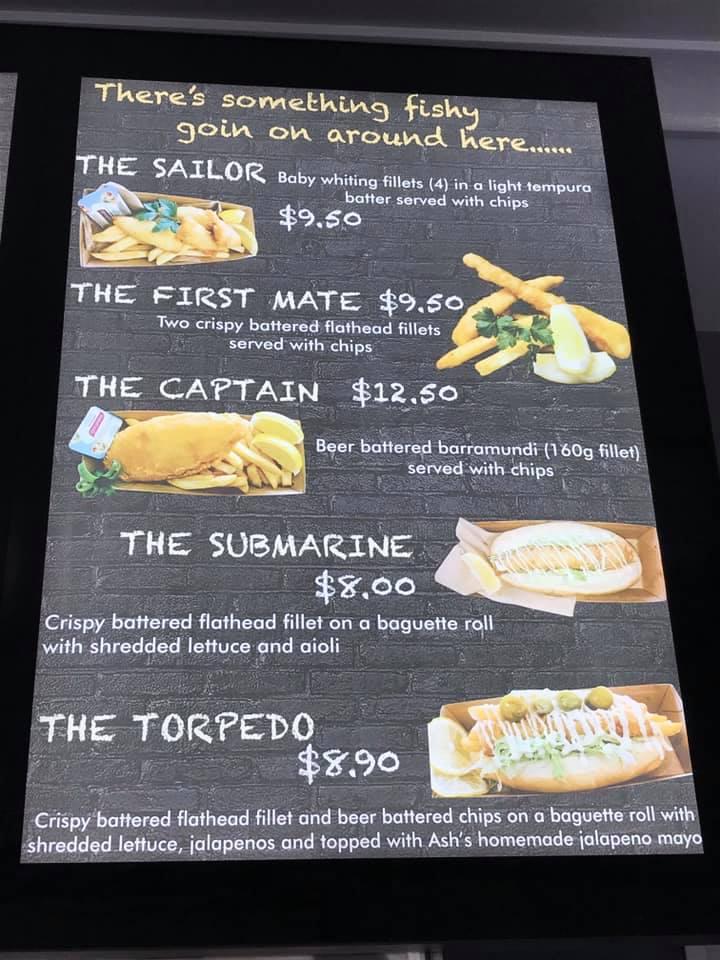 There's something fishy
goin on around here......
THE SAILOR Baby whiting fillets (4) in a light tempura
batter served with chips
$9.50
THE FIRST MATE $9.50
Two crispy battered flathead fillets
served with chips
THE CAPTAIN $12.50
Beer battered barramundi (160g fillet)
served with chips
THE SUBMARINE
$8.00
Crispy battered flathead fillet on a baguette roll
with shredded lettuce and aioli
THE TORPEDO
$8.90
Crispy battered flathead fillet and beer battered chips on a baguette roll with
shredded lettuce, jalapenos and topped with Ash's homemade jalapeno mayo